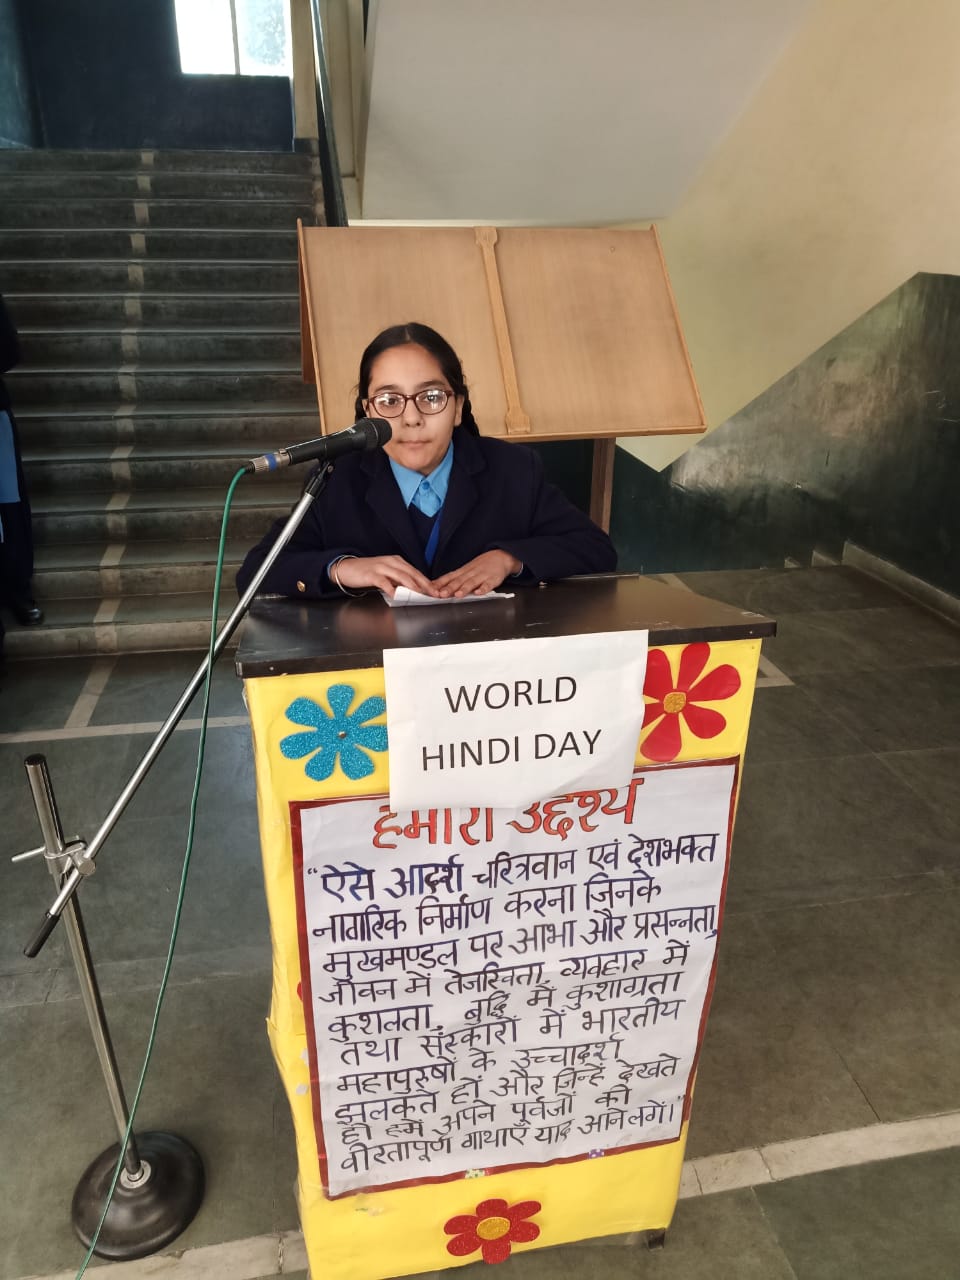 WORLD
HINDI DAY
हमारा उद्देश्य
"ऐसे आदर्श चरित्रवान एवं देशभक्त
नागरिक निर्माण करना जिनके
मुखमण्डल पर आभा और प्रसन्नता,
जीवन में तेजस्विता, व्यवहार में
कुशलता, बुद्धि में कुशाग्रता
तथा संस्कारों में भारतीय
महापुरुषों के उच्चादर्श
झलकते हों और जिन्हें देखते
ही हमें अपने पूर्वजों की
वीरतापूर्ण गाथाएँ याद आने लगें।"